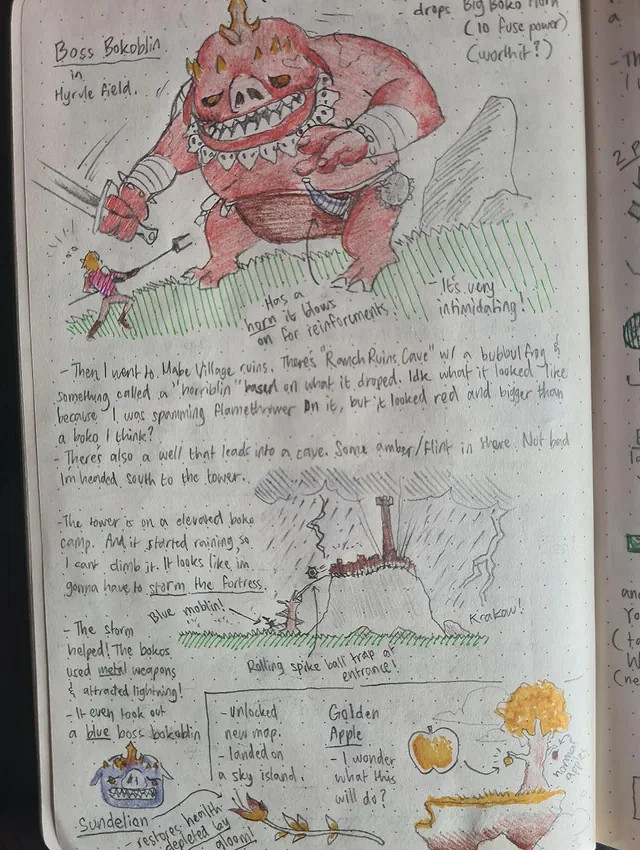 Boss Bokoblin
in
Hyrule field.
- drops Big Boko Horn
(10 fuse power)
(worth it?)
Has a
horn it blows
on for reinforcments
- It's very
intimidating!
- Then I went to Mabe Village ruins. There's "Ranch Ruins Cave" w/ a bubbul frog &
something called a "horriblin" based on what it droped. Idk what it looked like
because I was spamming flamethrower on it, but it looked red and bigger than
a boko I think?
- There's also a well that leads into a cave. Some amber/flint in there. Not bad
Im headed south to the tower.
- The tower is on a elevated boko
camp. And it started raining, so
I cant climb it. It looks like im
gonna have to storm the fortress.
Blue moblin!
Krakow!
Rolling spike ball trap at
entrance!
- The storm
helped! The bokos
used metal weapons
& attracted lightning!
- It even took out
a blue boss bokoblin
- unlocked
new map.
- landed on
a sky island.
Golden
Apple
- I wonder
what this
will do?
normal
apples
Sundelian
- restores health
depleted by
gloom!